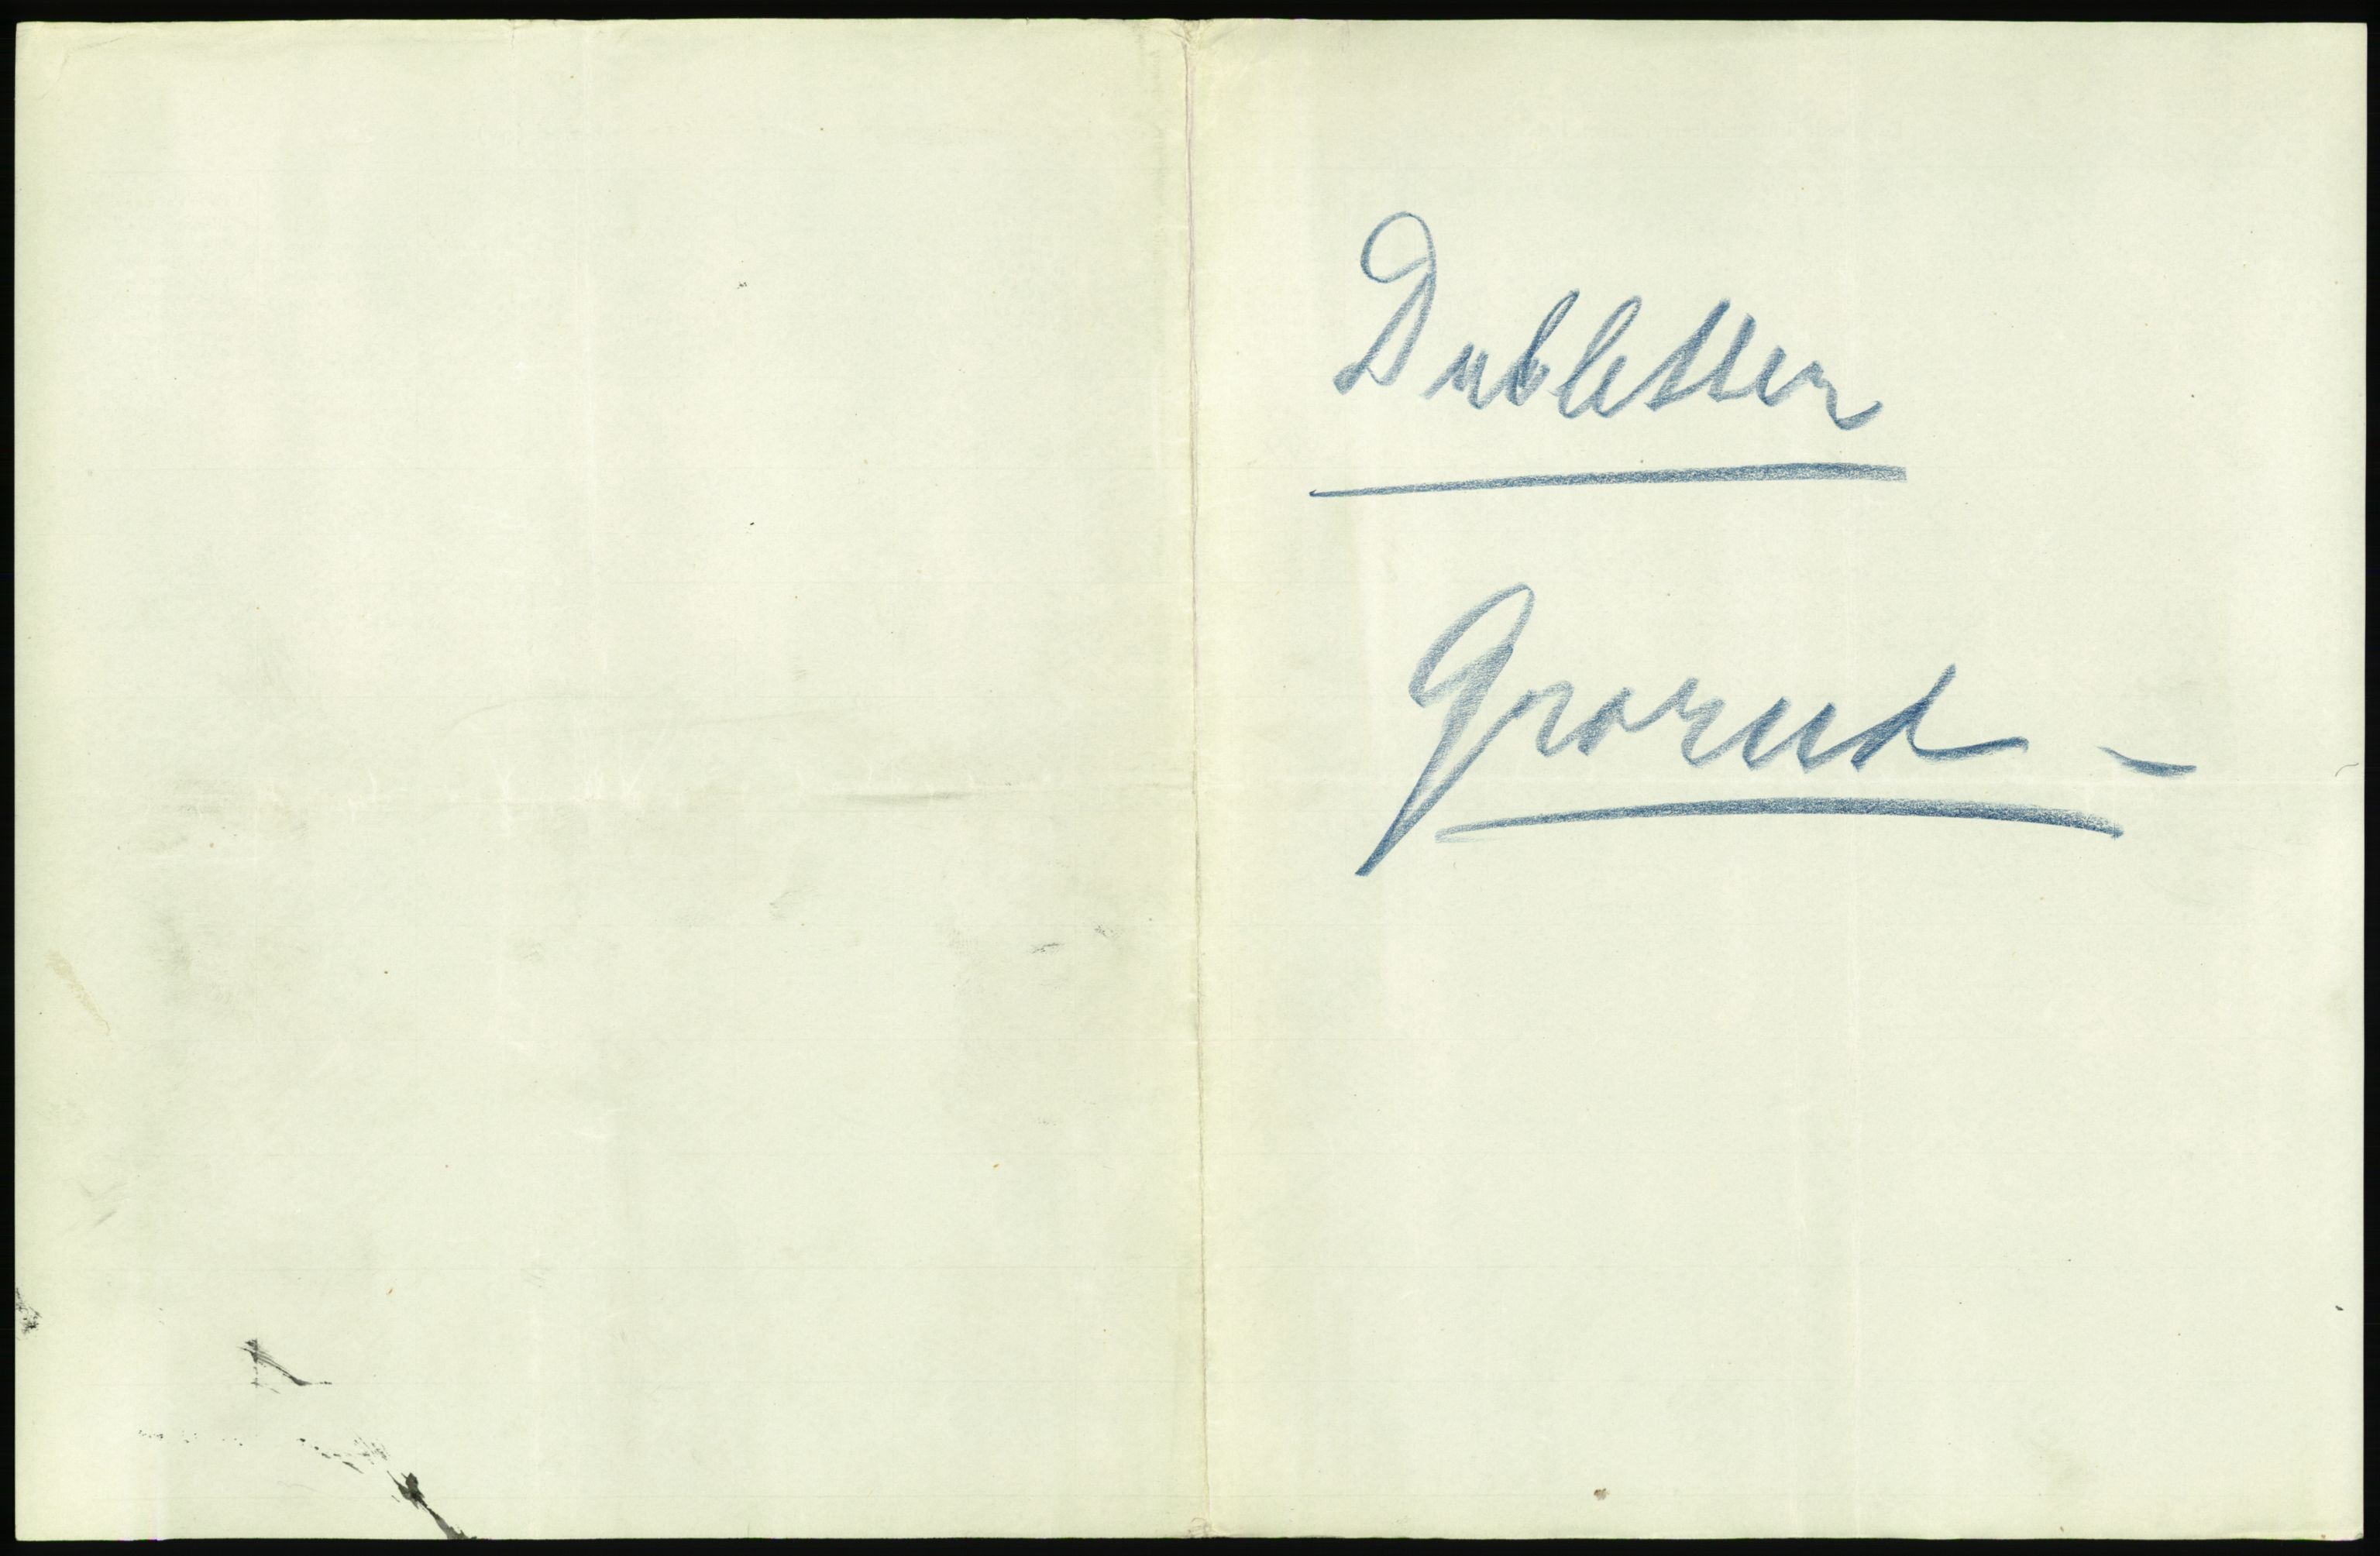 Dubletter
Grorud -